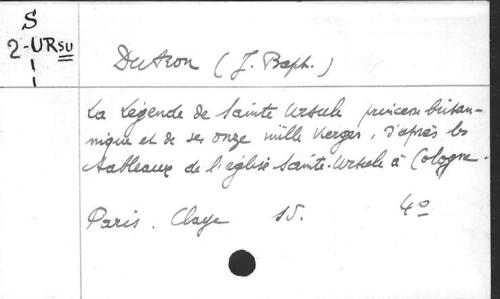 S
2-URSU
Dutron (J. Baph.)
La Légende de Sainte Ursule princesse britan-
nique et de ses onze mille vierges, d'après les
tableaux de l'église Sainte-Ursule à Cologne.
Paris. Claye SD. 4o